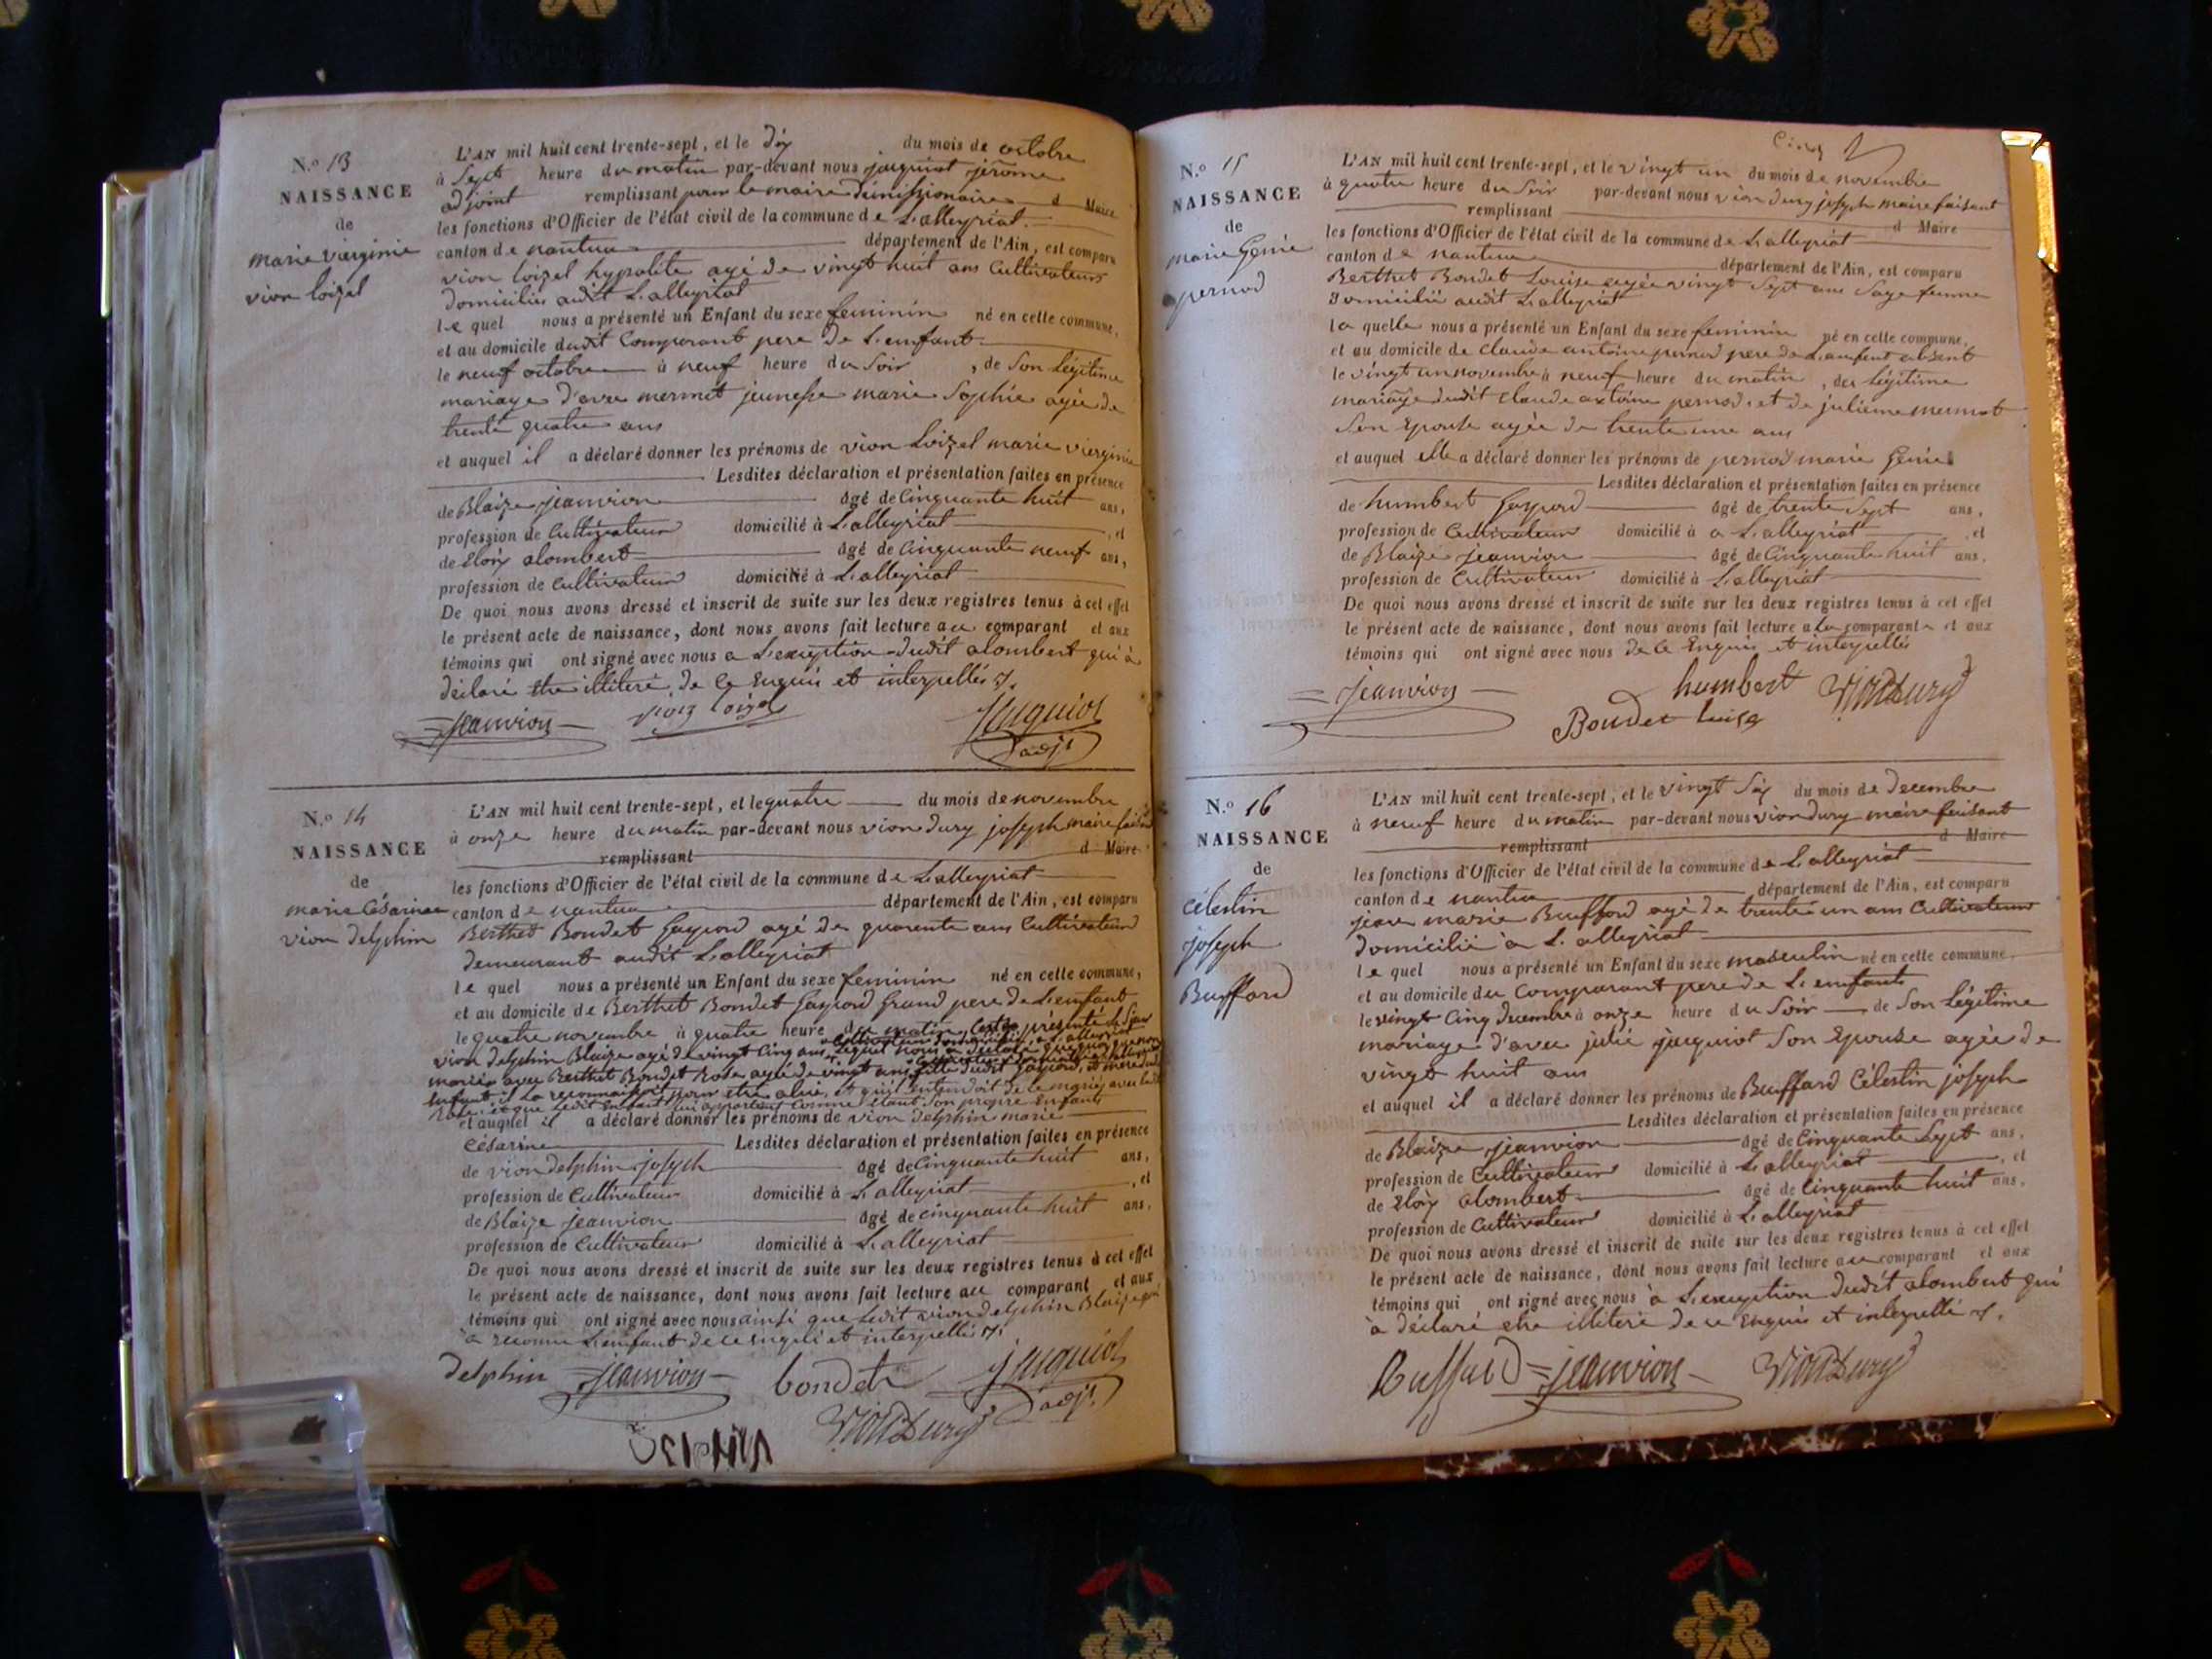 N.o 13
NAISSANCE
de
marie vierginie
vion loizel
L'AN mil huit cent trente-sept, et le dix du mois de octobre
à Sept heure du matin par-devant nous jacquiot jérome
adjoint remplissant pour le maire démissionaire d Maire
les fonctions d'Officier de l'état civil de la commune de L'alleyriat
canton de nantua département de l'Ain, est comparu
vion loizel hypolite agé de vingt huit ans Cultivateur
domicilié audit L'alleyriat
le quel nous a présenté un Enfant du sexe feminin né en cette commune,
et au domicile dudit Comparant pere de L'enfant
le neuf octobre à neuf heure du Soir , de Son légitime
mariage d'avec mermet jeunesse marie Sophie agée de
trente quatre ans
et auquel il a déclaré donner les prénoms de vion Loizel marie vierginie
Lesdites déclaration et présentation faites en présence
de Blaize jeanvion âgé de Cinquante huit ans,
profession de Cultivateur domicilié à L'alleyriat , et
de Eloix alombert âgé de Cinquante neuf ans,
profession de Cultivateur domicilié à L'alleyriat
De quoi nous avons dressé et inscrit de suite sur les deux registres tenus à cet effet
le présent acte de naissance, dont nous avons fait lecture au comparant et aux
témoins qui ont signé avec nous a L'exception dudit alombert qui à
déclaré être illiteré de Ce Enquis et interpellés
Jeanvion vion loizel Jacquiot
adjt
N.o 14
NAISSANCE
de
marie Césarine
vion delphin
L'AN mil huit cent trente-sept, et le quatre du mois de novembre
à onze heure du matin par-devant nous vion dury joseph maire faisant
remplissant d Maire
les fonctions d'Officier de l'état civil de la commune de L'alleyriat
canton de nantua département de l'Ain, est comparu
Berthet Bondet Gaspard agé de quarente ans Cultivateur
demeurant audit L'alleyriat
le quel nous a présenté un Enfant du sexe feminin né en cette commune,
et au domicile de Berthet Bondet Gaspard Grand pere de L'enfant
le quatre novembre à quatre heure du matin, présenté
vion delphin Blaize agé de vingt Cinq ans, lequel nous a déclaré
mariée avec Berthet Bondet Rose agée de vingt ans fille dudit Gaspard, et mere
enfant il La reconnaissoit pour être a lui, et qu'il entendoit de Ce marier avec
Rose, et que Ledit Enfant lui appartient Comme étant Son propre Enfant
et auquel il a déclaré donner les prénoms de vion delphin marie
Césarine Lesdites déclaration et présentation faites en présence
de vion delphin joseph âgé de Cinquante huit ans,
profession de Cultivateur domicilié à L'alleyriat , et
de Blaize jeanvion âgé de cinquante huit ans,
profession de Cultivateur domicilié à L'alleyriat
De quoi nous avons dressé et inscrit de suite sur les deux registres tenus à cet effet
le présent acte de naissance, dont nous avons fait lecture au comparant et aux
témoins qui ont signé avec nous ainsi que Ledit vion delphin Blaize qui
à reconnu L'enfant de ce enquis et interpellés
delphin Jeanvion bondet Jacquiot
adjt
VionDury
N.o 15
NAISSANCE
de
marie Génie
pernod
L'AN mil huit cent trente-sept, et le vingt un du mois de novembre
à quatre heure du Soir par-devant nous vion dury joseph maire faisant
remplissant d Maire
les fonctions d'Officier de l'état civil de la commune de L'alleyriat
canton de nantua département de l'Ain, est comparu
Berthet Bondet Louise agée vingt Sept ans Sage femme
domicilié audit L'alleyriat
la quelle nous a présenté un Enfant du sexe feminin né en cette commune,
et au domicile de claude antoine pernod pere de L'enfant absent
le vingt un novembre à neuf heure du matin , du légitime
mariage dudit claude antoine pernod, et de julienne mermet
Son Epouse agée de trente une ans
et auquel elle a déclaré donner les prénoms de pernod marie Génie
Lesdites déclaration et présentation faites en présence
de humbert Gaspard âgé de trente Sept ans,
profession de Cultivateur domicilié à a L'alleyriat , et
de Blaize jeanvion âgé de Cinquante huit ans,
profession de Cultivateur domicilié à L'alleyriat
De quoi nous avons dressé et inscrit de suite sur les deux registres tenus à cet effet
le présent acte de naissance, dont nous avons fait lecture a La comparante et aux
témoins qui ont signé avec nous de Ce Enquis et interpellés
Jeanvion humbert VionDury
Boudet luise
N.o 16
NAISSANCE
de
Célestin
joseph
Buffard
L'AN mil huit cent trente-sept, et le vingt Six du mois de Decembre
à neuf heure du matin par-devant nous vion dury maire faisant
remplissant d Maire
les fonctions d'Officier de l'état civil de la commune de L'alleyriat
canton de nantua département de l'Ain, est comparu
jean marie Buffard agé de trente un ans Cultivateur
domicilié à L'alleyriat
le quel nous a présenté un Enfant du sexe masculin né en cette commune,
et au domicile du Comparant pere de L'enfant
le vingt Cinq decembre à onze heure du Soir de Son légitime
mariage d'avec julie jacquiot Son Epouse agée de
vingt huit ans
et auquel il a déclaré donner les prénoms de Buffard Célestin joseph
Lesdites déclaration et présentation faites en présence
de Blaize jeanvion âgé de Cinquante Sept ans,
profession de Cultivateur domicilié à L'alleyriat , et
de Eloix alombert âgé de Cinquante huit ans,
profession de Cultivateur domicilié à L'alleyriat
De quoi nous avons dressé et inscrit de suite sur les deux registres tenus à cet effet
le présent acte de naissance, dont nous avons fait lecture au comparant et aux
témoins qui ont signé avec nous à L'exception dudit alombert qui
à déclaré etre illiteré de ce Enquis et interpellé
Buffard Jeanvion VionDury